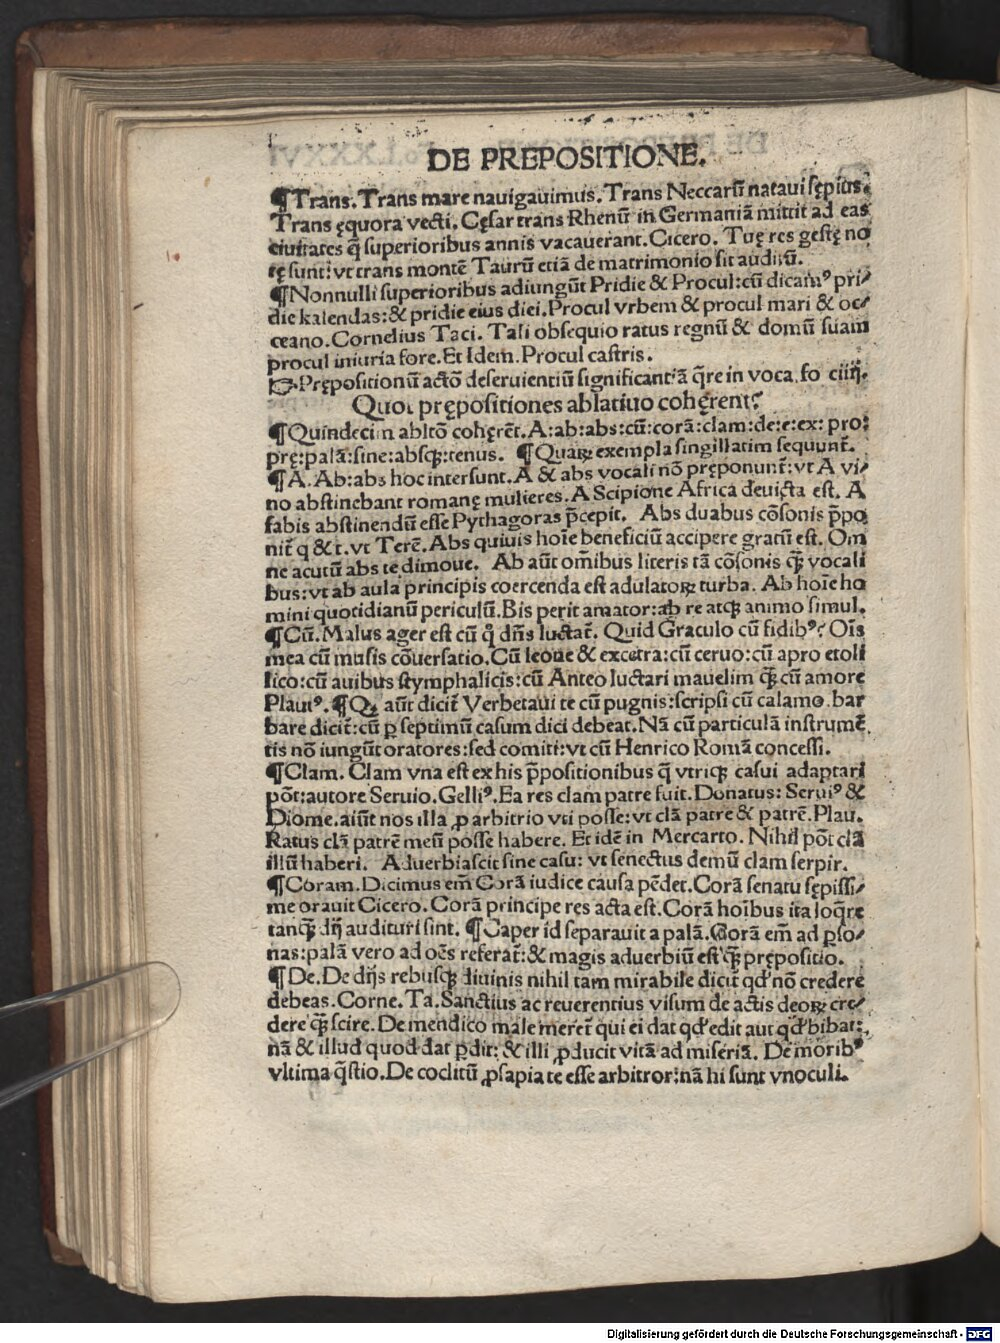 DE PREPOSITIONE.
¶Trans. Trans mare nauigauimus. Trans Neccarū nataui sępius.
Trans ęquora vecti. Cęsar trans Rhenū in Germaniā mittit ad eas
ciuitates q̄ superioribus annis vacauerant. Cicero. Tuę res gestę no
tę sunt: vt trans montē Taurū etiā de matrimonio sit auditū.
¶Nonnulli superioribus adiungūt Pridie & Procul: cū dicamꝰ pri⸗
die kalendas: & pridie eius diei. Procul vrbem & procul mari & oc⸗
ceano. Cornelius Taci. Tali obsequio ratus regnū & domū suam
procul iniuria fore. Et Idem. Procul castris.
☞Prępositionū actō deseruientiū significantiā q̄re in voca. fo ciiij.
Quot prępositiones ablatiuo cohęrent?
¶Quindecim abltō cohęrēt. A: ab: abs: cū: corā: clam: de: e: ex: pro:
prę: palā: sine: absqꝫ: tenus. ¶Quaꝝ exempla singillatim sequunt̄.
¶A. Ab: abs hoc intersunt. A & abs vocali nō pręponunt̄: vt A vi⸗
no abstinebant romanę mulieres. A Scipione Africa deuicta est. A
fabis abstinendū esse Pythagoras p̄cepit. Abs duabus cōsonis p̄po
nit̄ q & t. vt Terē. Abs quiuis hoīe beneficiū accipere gratū est. Om
ne acutū abs te dimoue. Ab aūt om̄ibus literis tā cōsonis qꝫ̄ vocali
bus: vt ab aula principis coercenda est adulatoꝝ turba. Ab hoīe ho
mini quotidianū periculū. Bis perit amator: ab re atqꝫ animo simul.
¶Cū. Malus ager est cū q̊ dn̄s luctat̄. Quid Graculo cū fidibꝰ? Oīs
mea cū musis cōuersatio. Cū leone & excetra: cū ceruo: cū apro etoli
lico: cū auibus stymphalicis: cū Anteo luctari mauelim qꝫ̄ cū amore
Plautꝰ. ¶Qꝫ aūt dicit̄ Verbetaui te cū pugnis: scripsi cū calamo. bar
bare dicit̄: cū ꝑ septimū casum dici debeat. Nā cū particulā instrumē
tis nō iungūt oratores: sed comiti: vt cū Henrico Romā concessi.
¶Clam. Clam vna est ex his p̄positionibus q̄ vtriqꝫ casui adaptari
pōt: autore Seruio. Gelliꝰ. Ea res clam patre fuit. Donatus: Seruiꝰ &
Diome. aiūt nos illa ꝓ arbitrio vti posse: vt clā patre & patrē. Plau.
Ratus clā patrē meū posse habere. Et idē in Mercato. Nihil pōt clā
illū haberi. Aduerbiascit sine casu: vt senectus demū clam serpit.
¶Coram. Dicimus em̄ Corā iudice causa pēdet. Corā senatu sępissi⸗
me orauit Cicero. Corā principe res acta est. Corā hoībus ita loq̄re
tanqꝫ̄ dij audituri sint. ¶Caper id separauit a palā. Corā em̄ ad ꝑso⸗
nas: palā vero ad oēs referat̄: & magis aduerbiū est qꝫ̄ prępositio.
¶De. De dijs rebusqꝫ diuinis nihil tam mirabile dicit̄ qd̓ nō credere
debeas. Corne. Ta. Sanctius ac reuerentius visum de actis deoꝝ cre⸗
dere qꝫ̄ scire. De mendico male meret̄ qui ei dat qd̓ edit aut qd̓ bibat:
nā & illud quod dat ꝑdit: & illi ꝓducit vitā ad miseriā. De moribꝰ
vltima q̄stio. De coclitū ꝓsapia te esse arbitror: nā hi sunt vnoculi.
Digitalisierung gefördert durch die Deutsche Forschungsgemeinschaft - DFG